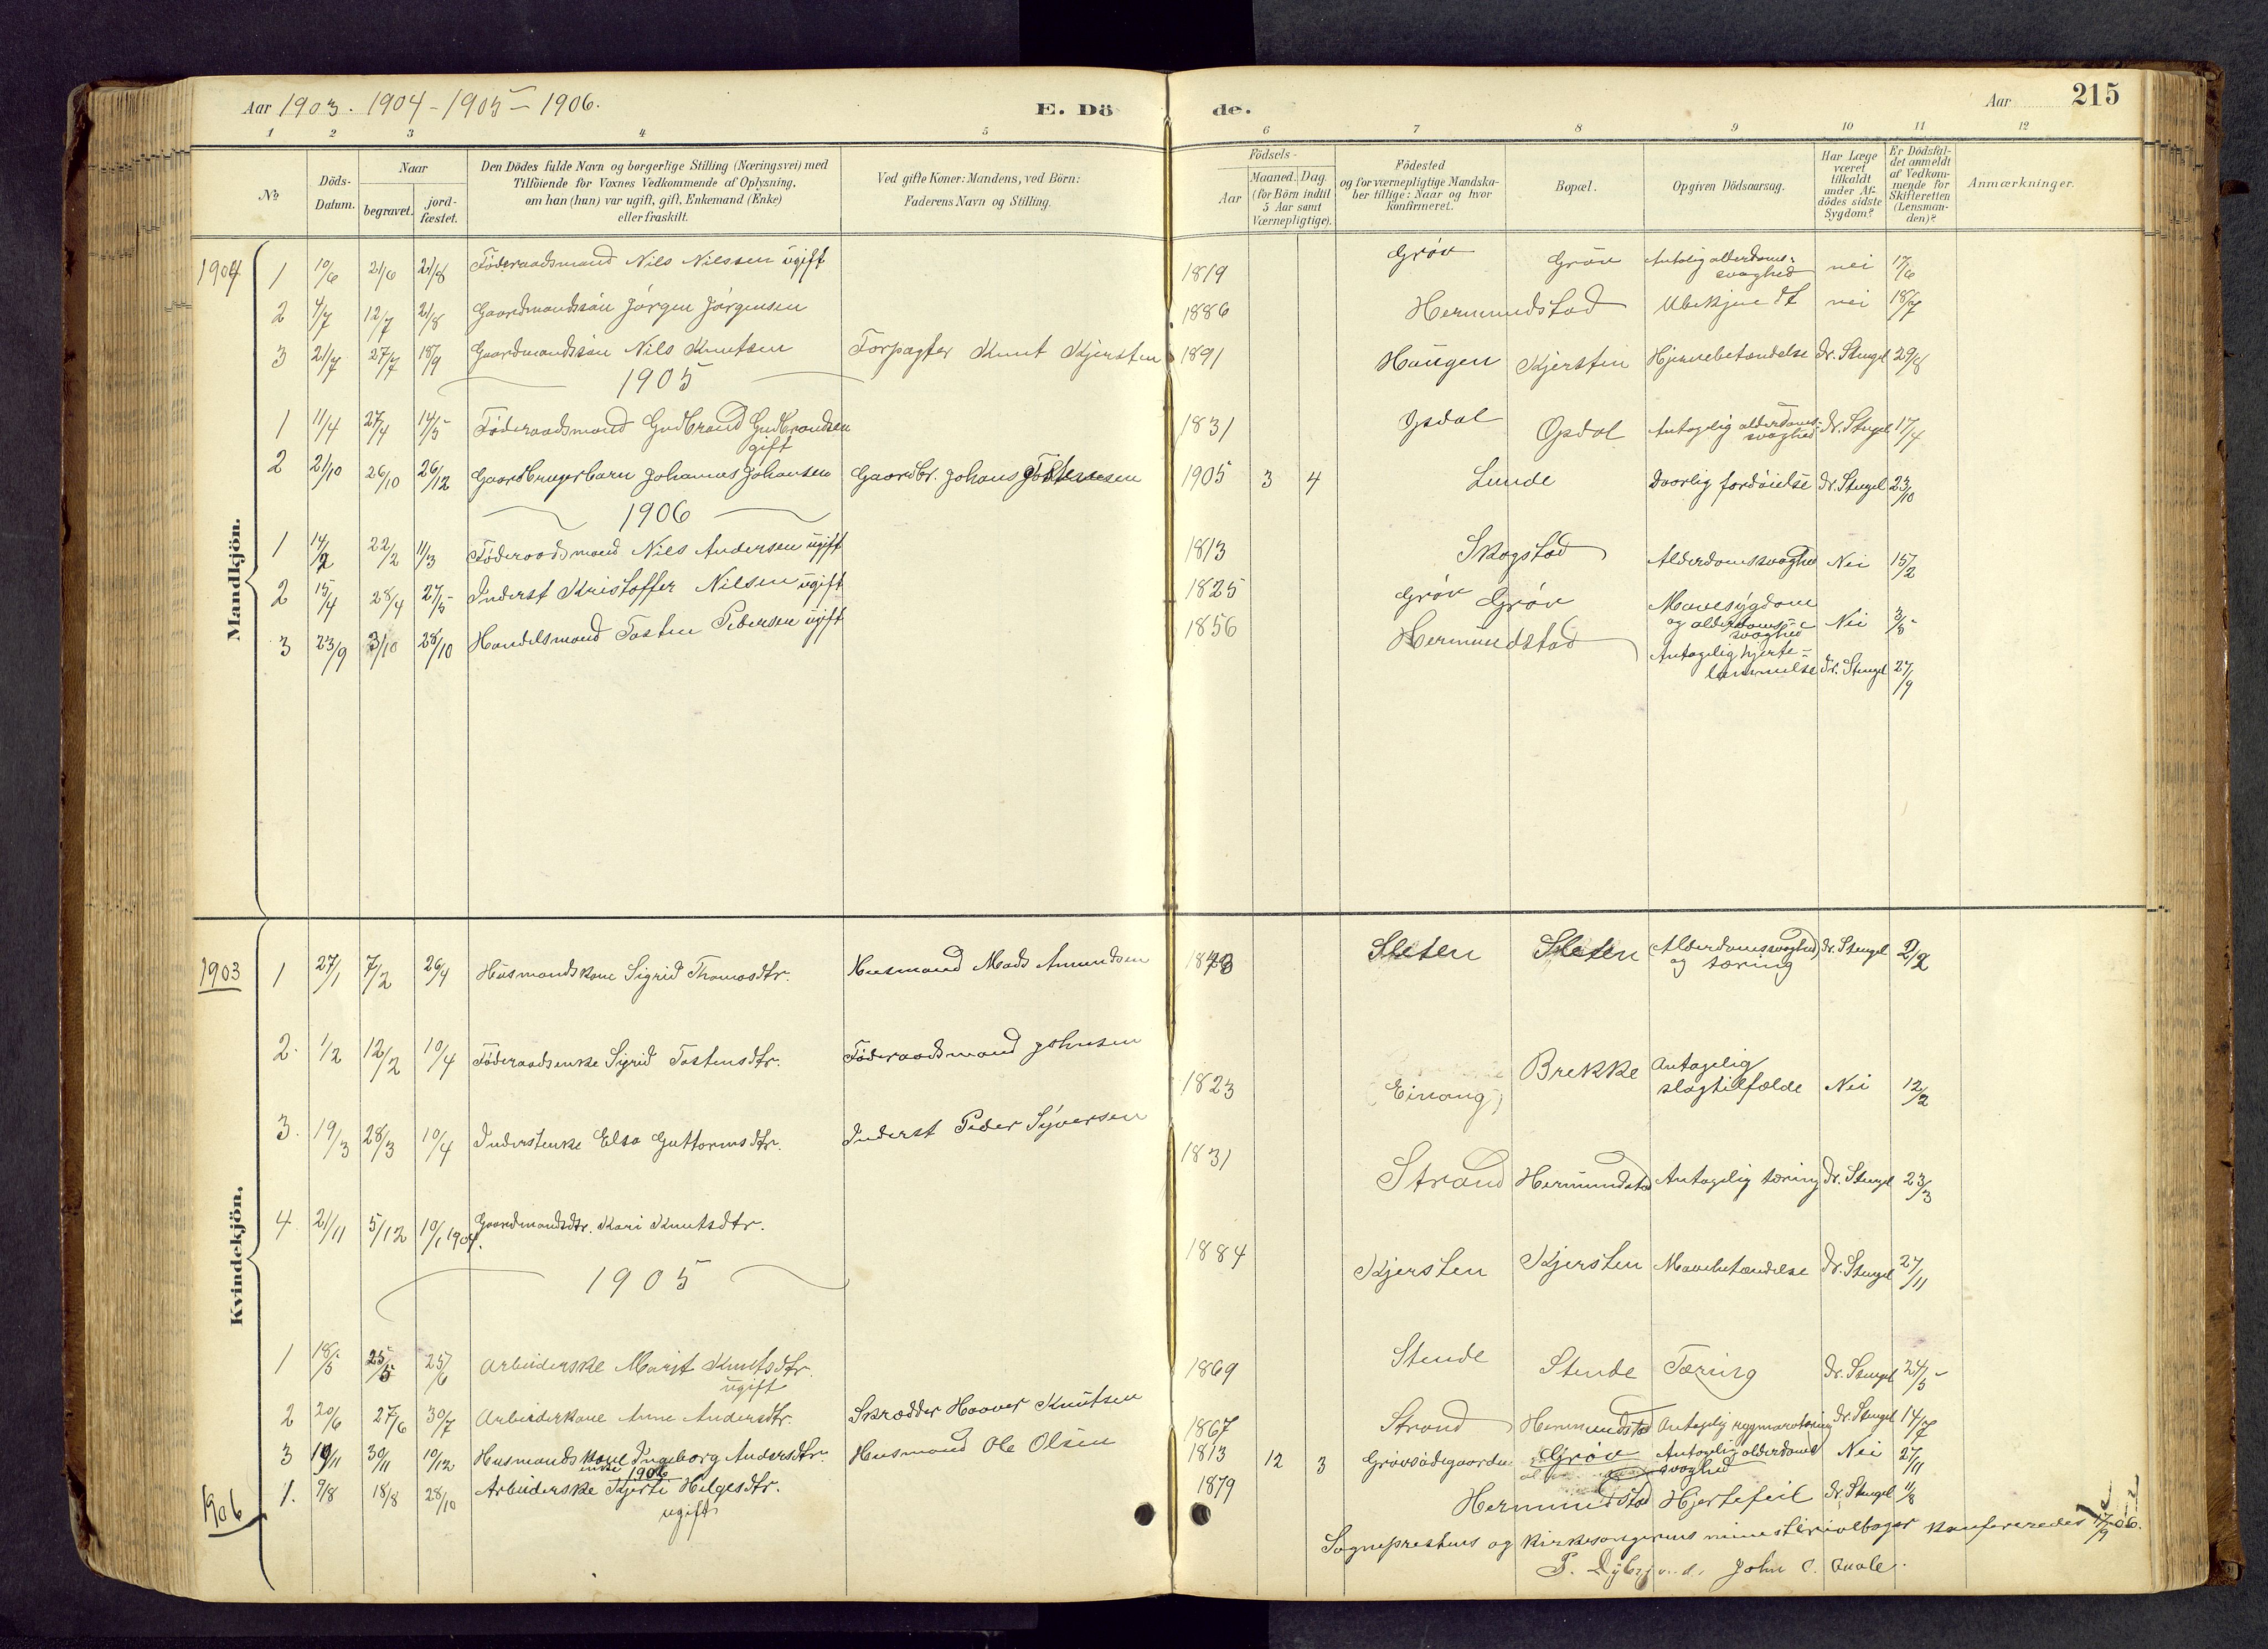 Aar 1903. 1904-1905-1906. E. Döde. Aar 215
1 2 3 4 5 6 7 8 9 10 11 12
No. Döds-Datum. Naar begravet. jordfæstet. Den Dödes fulde Navn og borgerlige Stilling (Næringsvei) med Tilföiende for Voxnes Vedkommende af Oplysning, om han (hun) var ugift, gift, Enkemand (Enke) eller fraskilt. Ved gifte Koner: Mandens, ved Börn: Faderens Navn og Stilling. Födsels- Aar Maaned. Dag. (for Börn indtil 5 Aar samt Værnepligtige). Födested og for værnepligtige Mandskaber tillige: Naar og hvor konfirmeret. Bopæl. Opgiven Dödsaarsag. Har Læge været tilkaldt under Afdödes sidste Sygdom? Er Dödsfaldet anmeldt af Vedkommende for Skifteretten (Lensmanden)? Anmærkninger.
Mandkjön.
1904 1 10/6 21/6 21/8 Föderaadsmand Nils Nilssen ugift 1819 Gröv Gröv Antalig alderdomssvaghed nei 17/6
2 4/7 12/7 21/8 Gaardmandssön Jörgen Jörgensen 1886 Hermundstad Ubekjendt nei 18/7
3 21/7 27/7 18/9 Gaardmandssön Nils Knutsen Forpagter Knut Kjersten 1891 Haugen Kjerstin Hjernebetændelse Dr. Stengel 29/8
1905
1 11/4 27/4 14/5 Föderaadsmand Gudbrand Gudbrandsen gift 1831 Opdal Opdal Antagelig alderdomssvaghed Dr. Stengel 17/4
2 21/10 26/10 26/12 Gaardbrugerbarn Johannes Johansen Gaardbr. Johans 1905 3 4 Lunde Daarlig fordöielse Dr. Stengel 23/10
1906
1 14/2 22/2 11/3 Föderaadsmand Nils Andersen ugift 1813 Skogstad Alderdomssvaghed Nei 15/2
2 15/4 28/4 27/5 Inderst Kristoffer Nilsen ugift 1825 Gröv Gröv Mavesygdom og alderdomssvaghed Nei 3/5
3 23/9 3/10 28/10 Handelsmand Tosten Pedersen ugift 1856 Hermundstad Antagelig hjertelammelse Dr. Stengel 27/9
Kvindekjön.
1903 1 27/1 7/2 26/4 Husmandskone Sigrid Thomasdtr. Husmand Mads Amundsen Sleten Sleten Alderdomssvaghed og tæring Dr. Stengel 2/2
2. 1/2 12/2 10/4 Föderaadsenke Sigrid Tostensdtr. Föderaadsmand Johnsen 1823 (Einang) Brekke Antagelig slagtilfælde Nei 12/2
3. 19/3 28/3 10/4 Inderstenke Elsa Guttormsdtr. Inderst Peder Syversen 1831 Strand Hermundstad Antagelig tæring Dr. Stengel 23/3
4. 21/11 5/12 10/1 1904. Gaardmandsdtr. Kari Knutsdtr. 1884 Kjersten Kjersten Mavebetændelse Dr. Stengel 27/11
1905
1 18/5 25/5 25/6 Arbeiderske Marit Knutsdtr. ugift 1869 Stende Stende Tæring Dr. Stengel 24/5
2 20/6 27/6 30/7 Arbeiderkone Anne Andersdtr. Skrædder Haaver Knutsen 1867 Strand Hermundstad Antagelig rygmarvtæring Dr. Stengel 14/7
3 19/11 30/11 10/12 Husmandskone enke Ingeborg Andersdtr. Husmand Ole Olsen 1813 12 3 Grövsödegaarden Gröv Antagelig alderdomssvaghed Nei 27/11
1906
1906 1. 9/8 18/8 28/10 Arbeiderske Kjersti Helgesdtr. ugift 1879 Hermundstad Hjertefeil Dr. Stengel 11/8
Sogneprestens og kirkesangerens ministerialböger konfereredes 17/9 06.
John O. Quale.